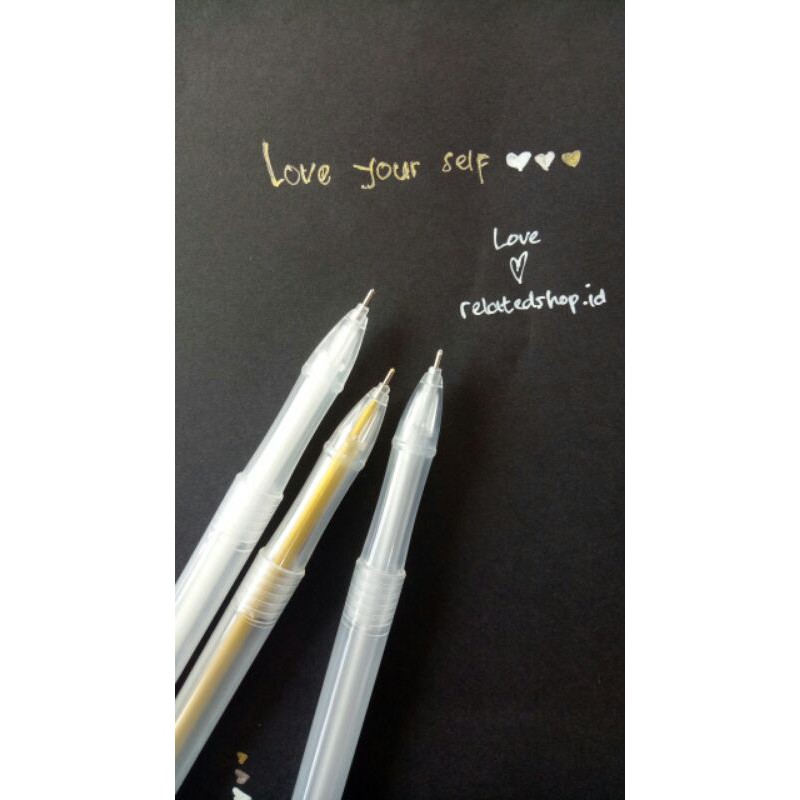 Love your self
Love
relatedshop.id